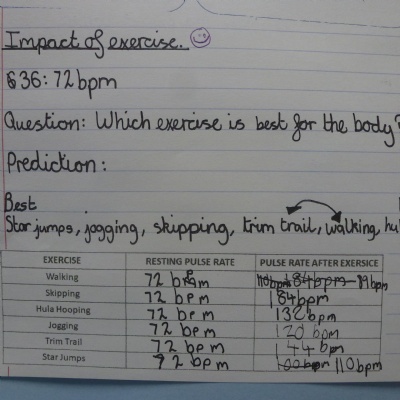 Impact of exercise.
36:72bpm
Question: Which exercise is best for the body?
Prediction:
Best
Star jumps, jogging, skipping, trim trail, walking, hu
EXERCISE RESTING PULSE RATE PULSE RATE AFTER EXERSICE
Walking 72 bpm 184bpm 89bpm
Skipping 72 bpm 184bpm
Hula Hooping 72 bpm 132bpm
Jogging 72 bpm 120bpm
Trim Trail 72 bpm 144bpm
Star Jumps 72 bpm 100bpm 110bpm